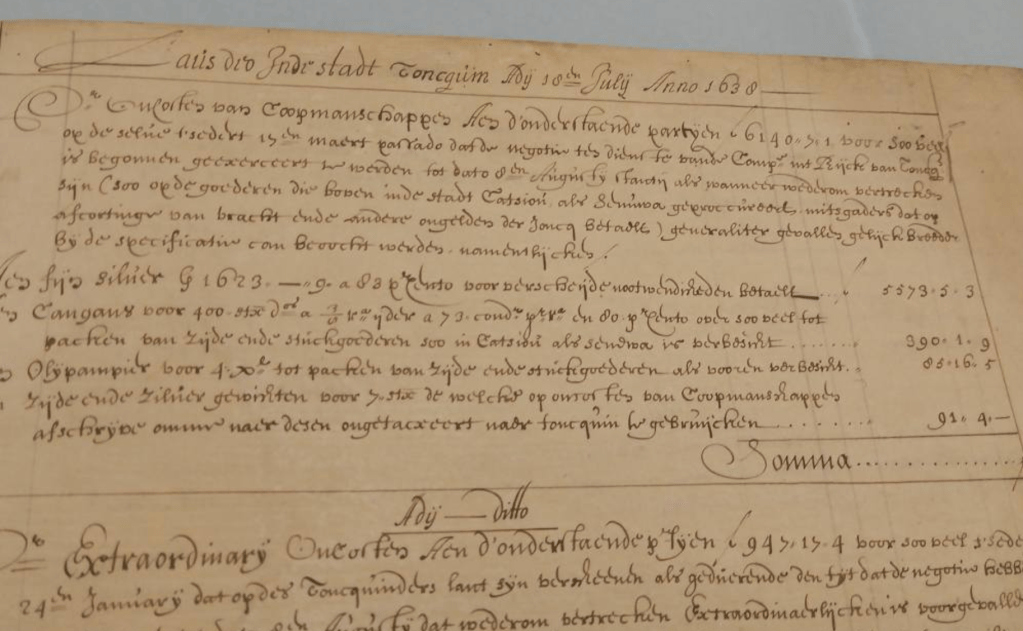 Laus deo Inde stadt Toncquin Adij 18en Julij Anno 1638
De Oncosten van Coopmanschappen Aen d'onderstaende partijen ƒ 6140.7.1 voor soo veel
op de selve t'sedert 17en maert passado dat de negotie ten dienste vande Compe int Rijck van
is begonnen geexerceert te werden tot dato 8en Augustij als wanneer wederom vertrecken
sijn (soo op de goederen die boven inde stadt Catsiou als geproccureert mitsgaders dat op
van vracht ende andere ongelden der Joncq betaelt) generaliter gevallen gelijck breeder
bij de specificatie can beoocht werden. namentlijcken.
Aen fijn silver 1623.—.9. a 83 p cento voor verscheijde nootwendicheden betaelt ... 5573.5.3
Cangans voor 400. stx a ijder a 73. en 80. p cento over soo veel tot
packen van zijde ende stuckgoederen soo in Catsiou als is verbesicht ....... 390.1.9
Olypampier voor 4. tot packen van zijde ende stuckgoederen als vooren verbesicht. 85.16.5
zijde ende zilver gewichten voor 7. stx de welcke op oncosten van Coopmanschappen
afschrijve omme naer desen ongetaxeert naer toncquin te gebruijcken ....... 91.4.—
Somma..............
Adij — Ditto
De Extraordinarij Oncosten Aen d'onderstaende ptijen ƒ 947.17.4 voor soo veel t'sede
24en Januarij dat op des Toncquinders lant sijn verscheenen als geduerende den tijt dat de negotie hebb
Augustij dat wederom vertrecken Extraordinaerlijcken is voorgevallen